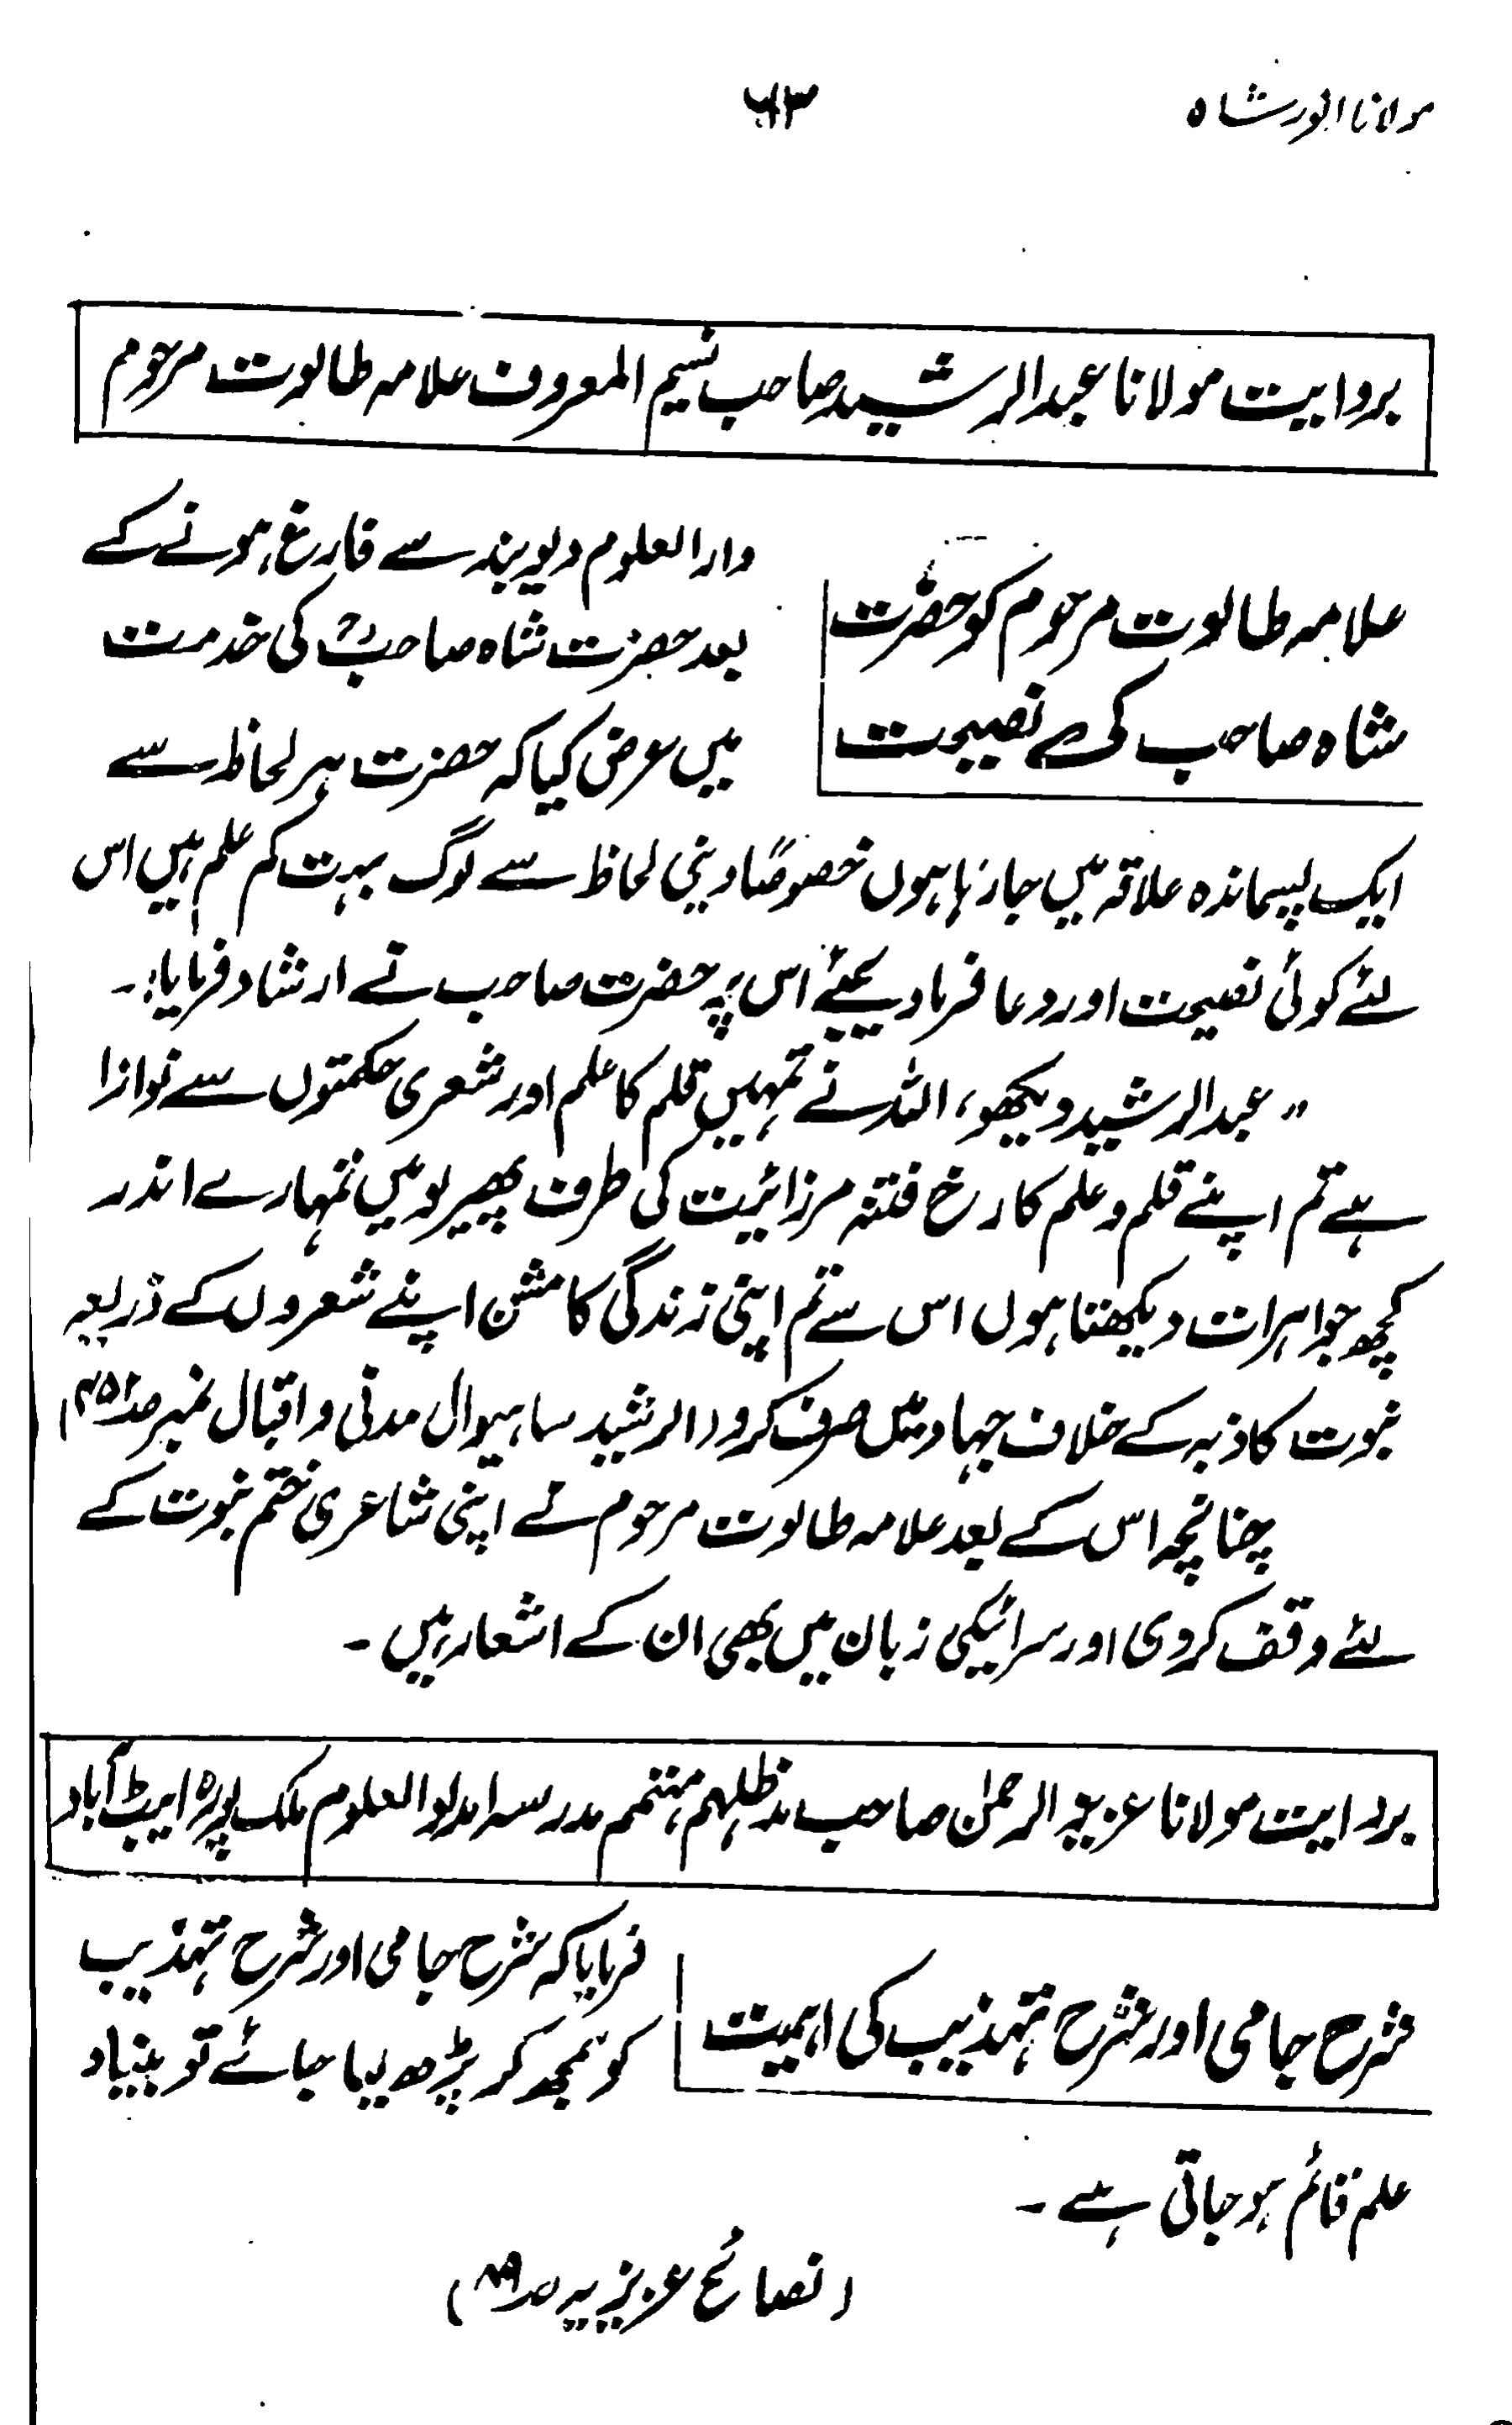 مولانا انور شاہ
۶۳
بروایت مولانا عبدالرشید صاحب نسیم المعروف علامہ طالوت مرحوم
علامہ طالوت مرحوم کو حضرت
شاہ صاحب کی نصیحت
دارالعلوم دیوبند سے فارغ ہونے کے
بعد حضرت شاہ صاحبؒ کی خدمت
میں عرض کیا کہ حضرت ہر لحاظ سے
ایک پسماندہ علاقہ میں جا رہا ہوں خصوصًا دینی لحاظ سے لوگ بہت کم علم ہیں اس
لئے کوئی نصیحت اور دعا فرما دیجئے اس پر حضرت صاحب نے ارشاد فرمایا:۔
"عبدالرشید دیکھو، اللہ نے تمہیں قلم کا علم اور شعری حکمتوں سے نوازا
ہے تم اپنے قلم و علم کا رخ فتنۂ مرزائیت کی طرف پھیر لو میں تمہارے اندر
کچھ جواہرات دیکھتا ہوں اس سے تم اپنی زندگی کا مشن اپنے شعروں کے ذریعہ
نبوت کاذبہ کے خلاف جہاد میں صرف کرو (الرشید ساہیوال مدنی و اقبال نمبر صـ۴۵۱)
چنانچہ اس کے بعد علامہ طالوت مرحوم نے اپنی شاعری ختم نبوت کے
لئے وقف کر دی اور سرائیکی زبان میں بھی ان کے اشعار ہیں ۔
بروایت مولانا عزیز الرحمٰن صاحب مدظلہم مہتمم مدرسہ امدادالعلوم ملک پورہ ایبٹ آباد
شرح جامی اور شرح تہذیب کی اہمیت
فرمایا کہ شرح جامی اور شرح تہذیب
کو سمجھ کر پڑھ لیا جائے تو بنیاد
علم قائم ہو جاتی ہے ۔
(نصائح عزیزیہ صـ۸۹)